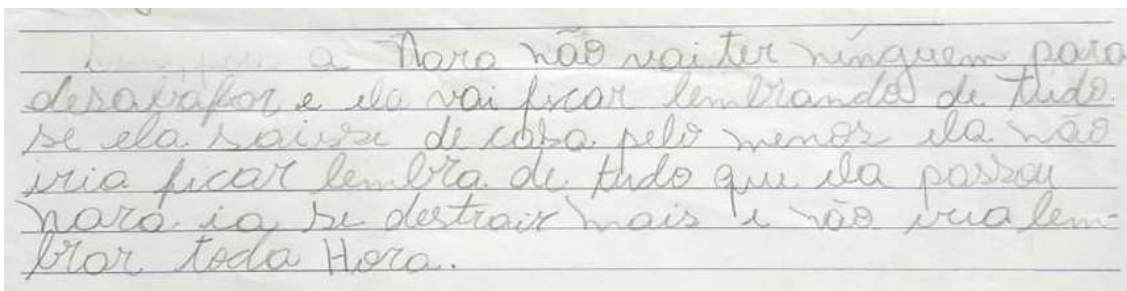 a Nara não vai ter ninguem para
desabafar e ela vai ficar lembrando de tudo.
se ela saisse de casa pelo menos ela não
iria ficar lembra de tudo que ela passou
nara ia se destrair mais e não iria lem-
brar toda Hora.